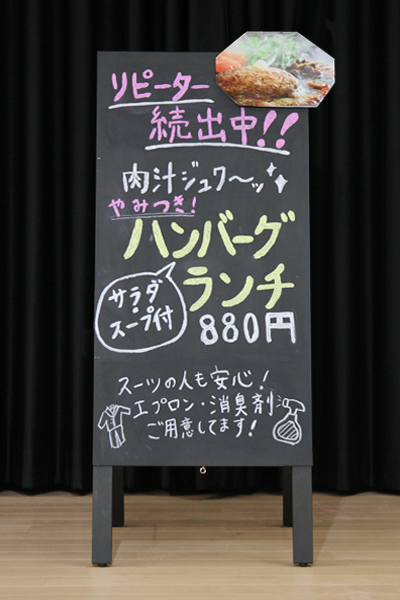 リピーター
続出中!!
肉汁ジュワ〜ッ
やみつき!
ハンバーグ
ランチ
サラダ
・
スープ付
880円
スーツの人も安心!
エプロン・消臭剤
ご用意してます!